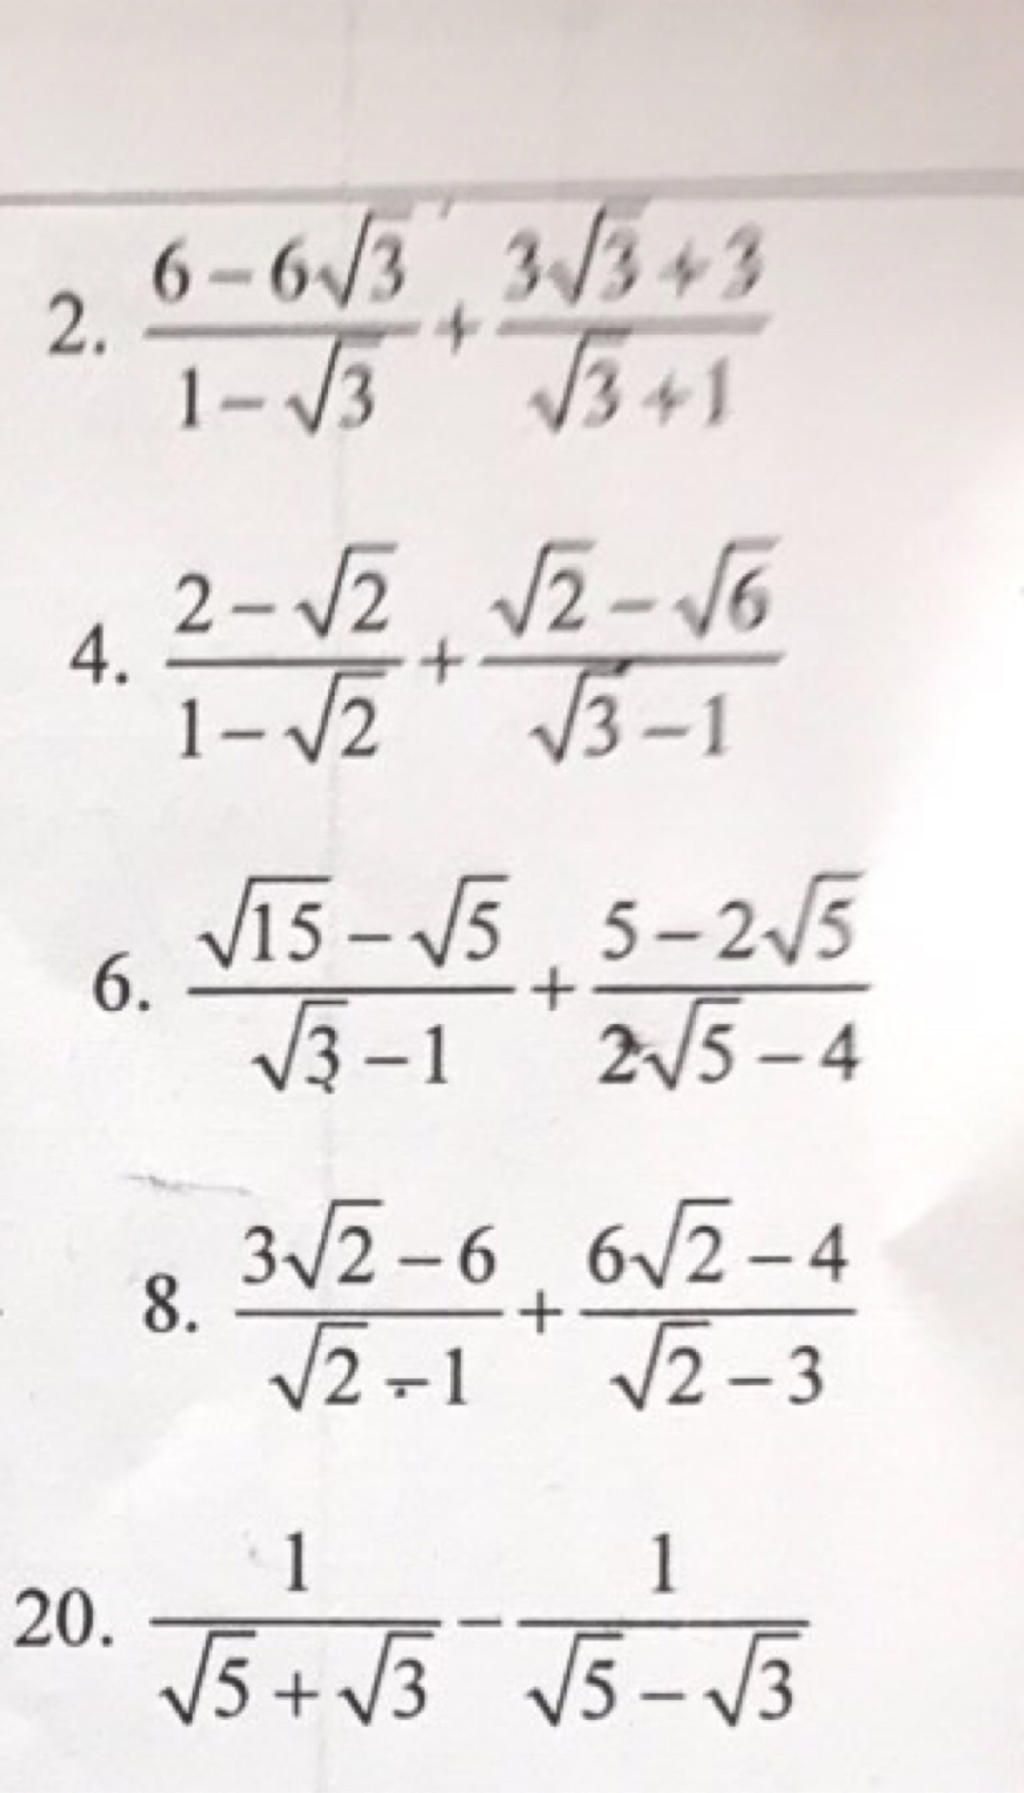 2. \frac{6-6\sqrt{3}}{1-\sqrt{3}} + \frac{3\sqrt{3}+3}{\sqrt{3}+1}
4. \frac{2-\sqrt{2}}{1-\sqrt{2}} + \frac{\sqrt{2}-\sqrt{6}}{\sqrt{3}-1}
6. \frac{\sqrt{15}-\sqrt{5}}{\sqrt{3}-1} + \frac{5-2\sqrt{5}}{2\sqrt{5}-4}
8. \frac{3\sqrt{2}-6}{\sqrt{2}-1} + \frac{6\sqrt{2}-4}{\sqrt{2}-3}
20. \frac{1}{\sqrt{5}+\sqrt{3}} - \frac{1}{\sqrt{5}-\sqrt{3}}